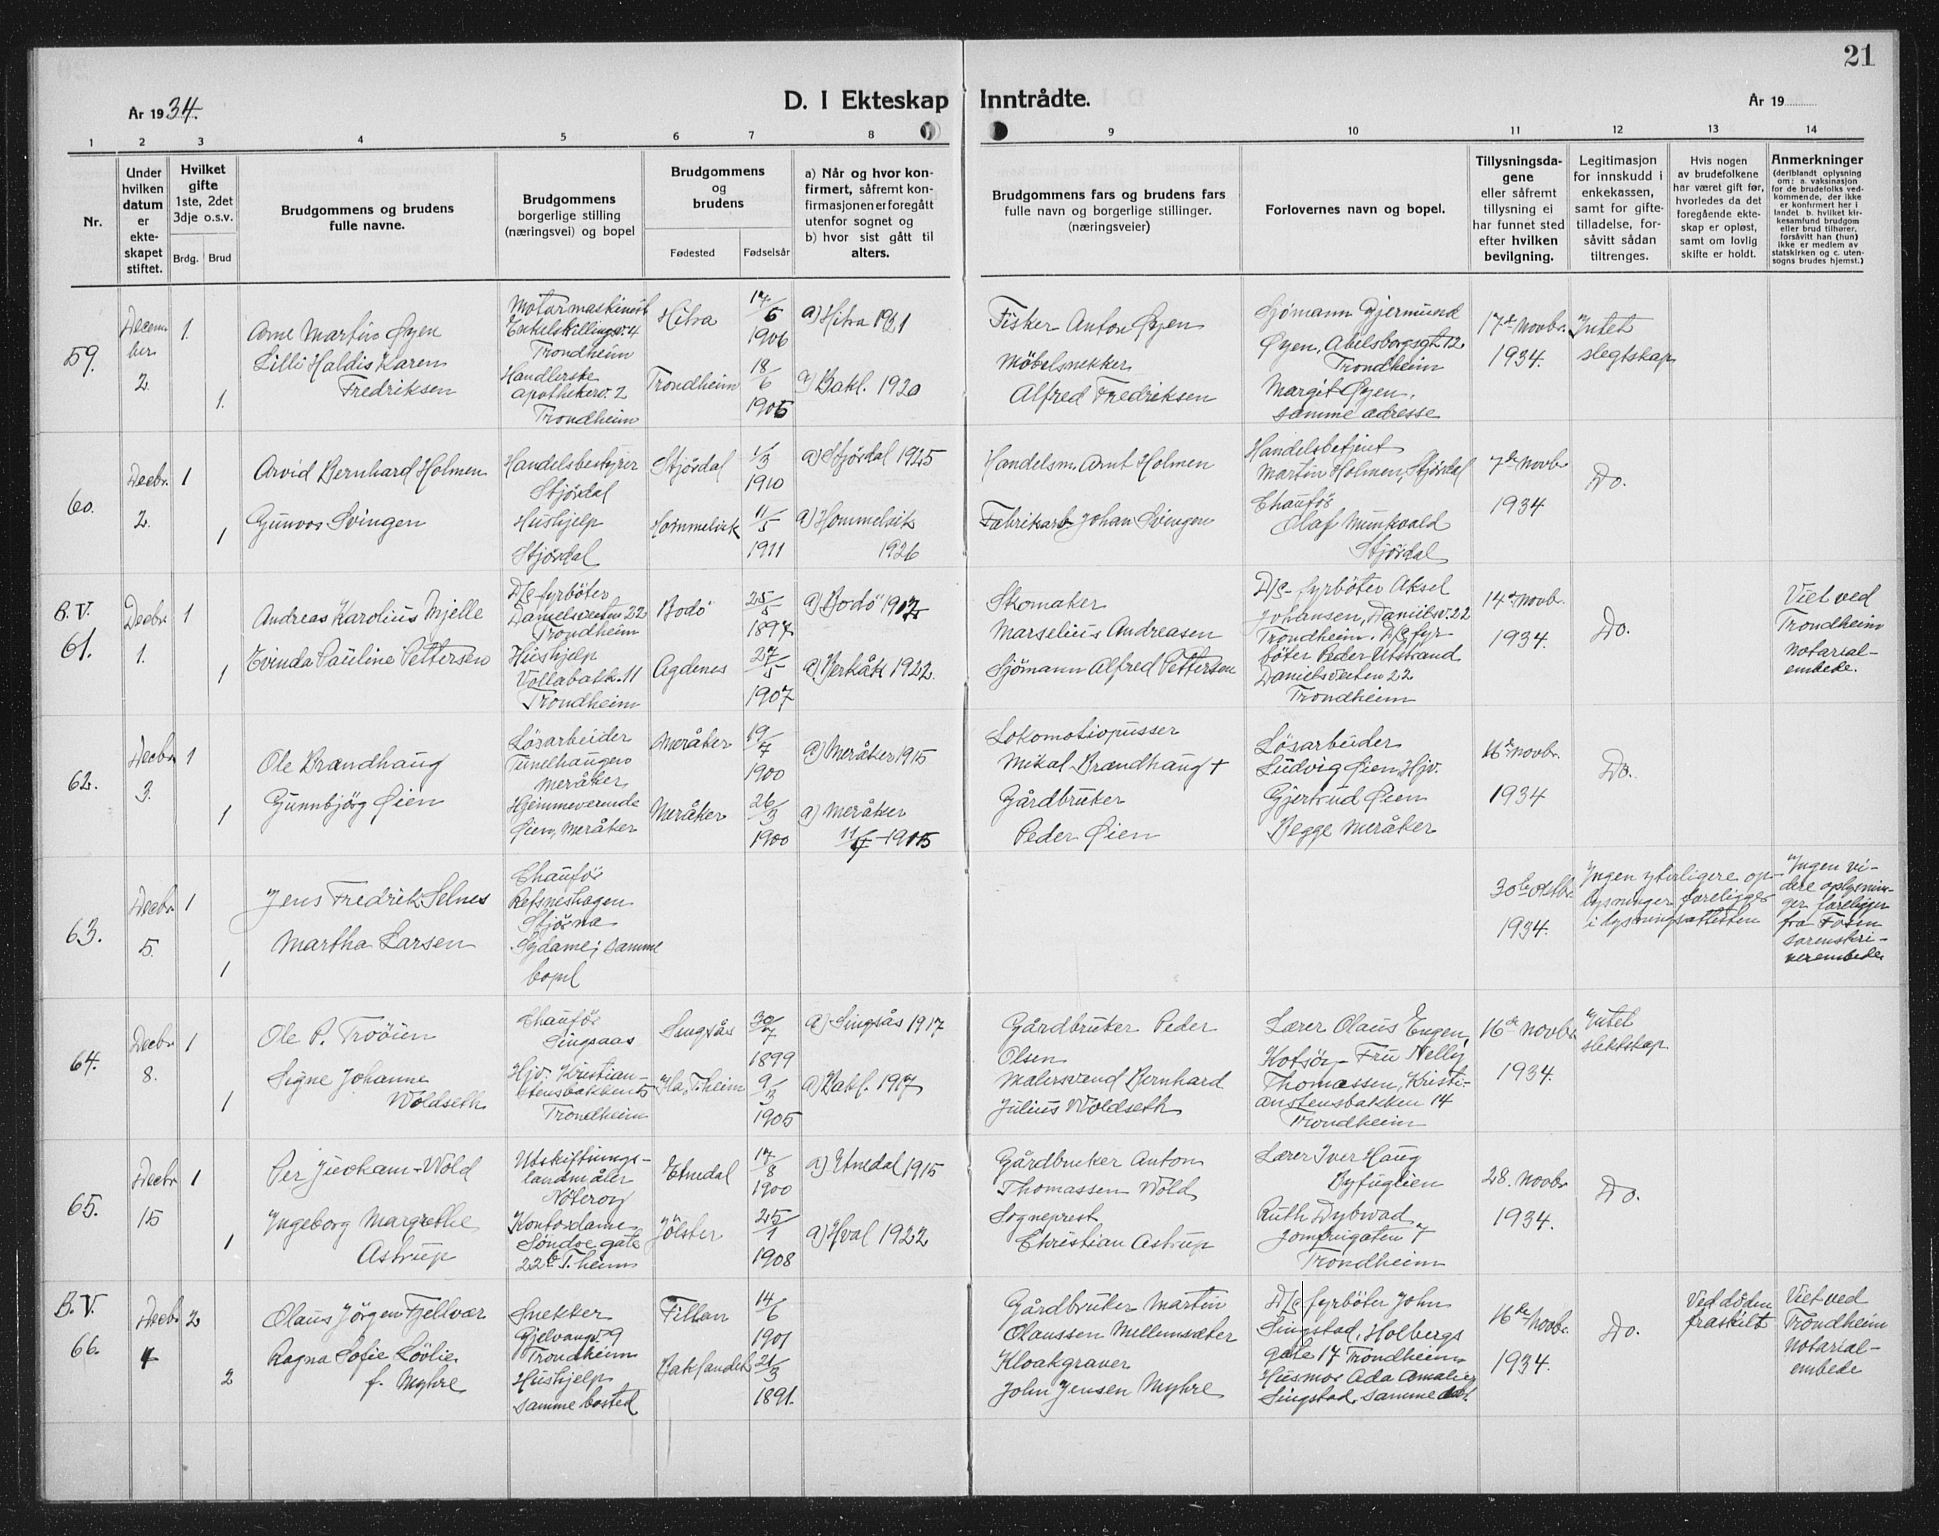 21
År 1934.
D. I Ekteskap Inntrådte.
År 19
1 2 3 4 5 6 7 8 9 10 11 12 13 14
Nr.
Under hvilken datum er ekteskapet stiftet.
Hvilket gifte 1ste, 2det 3dje o.s.v.
Brdg. Brud
Brudgommens og brudens fulle navne.
Brudgommens borgerlige stilling (næringsvei) og bopel
Brudgommens og brudens
Fødested Fødselsår
a) Når og hvor konfirmert, såfremt konfirmasjonen er foregått utenfor sognet og b) hvor sist gått til alters.
Brudgommens fars og brudens fars fulle navn og borgerlige stillinger. (næringsveier)
Forlovernes navn og bopel.
Tillysningsdagene eller såfremt tillysning ei har funnet sted efter hvilken bevilgning.
Legitimasjon for innskudd i enkekassen, samt for giftetilladelse, forsåvitt sådan tiltrenges.
Hvis nogen av brudefolkene har været gift før, hvorledes da det foregående ekteskap er opløst, samt om lovlig skifte er holdt.
Anmerkninger (deriblandt oplysning om: a. vaksinasjon for de brudefolks vedkommende, der ikke er konfirmert her i landet b. hvilket kirkesamfund brudgom eller brud tilhører, forsåvitt han (hun) ikke er medlem av statskirken og c. utensogns brudes hjemst.)
59.
Decem
ber
2.
1.
1.
Arne Martin Øyen
Lilli Haldis Karen
Fredriksen
Motormaskinist
Enkelskillingsv. 4
Trondheim
Handlerske
Apothekerv. 2
Trondheim
Hitra
Trondheim
17/6
1906
18/6
1905
a) Hitra 1921
a) Bakl. 1920
Fisker Anton Øyen
Møbelsnekker
Alfred Fredriksen
Sjømann Gjermund
Øyen, Abelsborgsgt. 12
Trondheim
Margit Øyen,
samme adresse
17de Novbr.
1934.
Intet
slegtskap
60.
Decbr.
2.
1
1
Arvid Bernhard Holmen
Gunvor Svingen
Handelsbestyrer
Stjørdal
Hushjelp
Stjørdal
Stjørdal
Hommelvik
1/3
1910
11/5
1911
a) Stjørdal 1925
a) Hommelvik
1926
Handelsm. Arnt Holmen
Fabrikarb. Johan Svingen
Handelsbetjent
Martin Holmen, Stjørdal
Chaufør
Olaf Munkvald
Stjørdal
7de Novbr
1934
Do.
B. V.
61.
Decbr.
1.
1
1
Andreas Karolius Mjelle
Evinda Pauline Pettersen
D/s fyrbøter
Danielsveiten 22
Trondheim
Hushjelp
Vollabakk. 11
Trondheim
Bodö
Agdenes
25/5
1897
27/5
1907
a) Bodö 1912
a) Berkåk 1922.
Skomaker
Marselius Andreasen
Sjømann Alfred Pettersen
D/s fyrbøter Aksel
Johansen, Danielsv. 22
Trondheim. D/s fyr
bøter Peder Utstrand
Danielsveiten 22
Trondheim
14de Novbr.
1934.
Do.
Viet ved
Trondheim
Notarial-
embede.
62.
Decbr.
3.
1
1
Ole Brandhaug
Gunnbjörg Øien
Løsarbeider
Tunelhaugen
Meråker
Hjemmeværende
Øien, Meråker
Meråker
Meråker
19/7
1900
26/3
1900
a) Meråker 1915
a) Meråker
1915
Lokomotivpusser
Mikal Brandhaug +
Gårdbruker
Peder Øien
Løsarbeider
Ludvig Øien, Hjv.
Gjertrud Øien
Begge Meråker
16de Novbr.
1934
Do.
63.
Decbr.
5.
1
1
Jens Fredrik Selnes
Martha Larsen
Chaufør
Refsneshagen
Stjørna
Sydame; samme
bopel
30te oktbr.
1934.
Ingen yterligere op-
lysninger foreligger
i lysningsattesten
Ingen vi-
dere oplysnin-
ger foreligger
fra Fosen
sorenskri-
verembede
64.
Decbr.
8.
1
1
Ole P. Trøøien
Signe Johanne
Woldseth
Chaufør
Singsaas
Hjv. Kristian-
stensbakken 5
Trondheim
Singsås
Ila, T.heim
30/7
1899
9/3
1905
a) Singsås 1917
a) Bakl. 1917
Gårdbruker Peder
Olsen
Malersvend Bernhard
Julius Woldseth
Lærer Olaus Engen,
Kotsøy - Fru Nelly
Thomassen, Kristi-
anstensbakken 14
Trondheim
16de Novbr.
1934.
Intet
slektskap
65.
Decbr.
15
1
1
Per Wold
Ingeborg Margrethe
Astrup
Utskiftnings-
landmåler
Nøterøy
Kontordame
Söndre gate
22b T.heim
Etnedal
Jölster
17/8
1900
25/1
1908
a) Etnedal 1915
a) Hval 1922
Gårdbruker Anton
Thomassen Wold
Sogneprest
Christian Astrup
Lærer Iver Haug
Byfuglien
Ruth Dybwad
Jomfrugaten 7
Trondheim
28. Novbr
1934.
Do.
B. V.
66.
Decbr
4
2
2
Olaus Jörgen Fjellvær
Ragna Sofie Løvlie
f. Myhre
Snekker
Gjelvangv. 9
Trondheim
Hushjelp
samme bosted
Fillan
Baklandet
14/6
1901
21/3
1891.
Gårdbruker Martin
Olaussen Mellemsæter
Kloakgraver
John Jensen Myhre
D/s fyrbøter John
Singstad, Holbergs
gate 17 Trondheim
Husmor Ada Amalie
Singstad, samme
16de Novbr.
1934.
Do.
Ved döden
fraskilt
Viet ved
Trondheim
Notarial-
embede